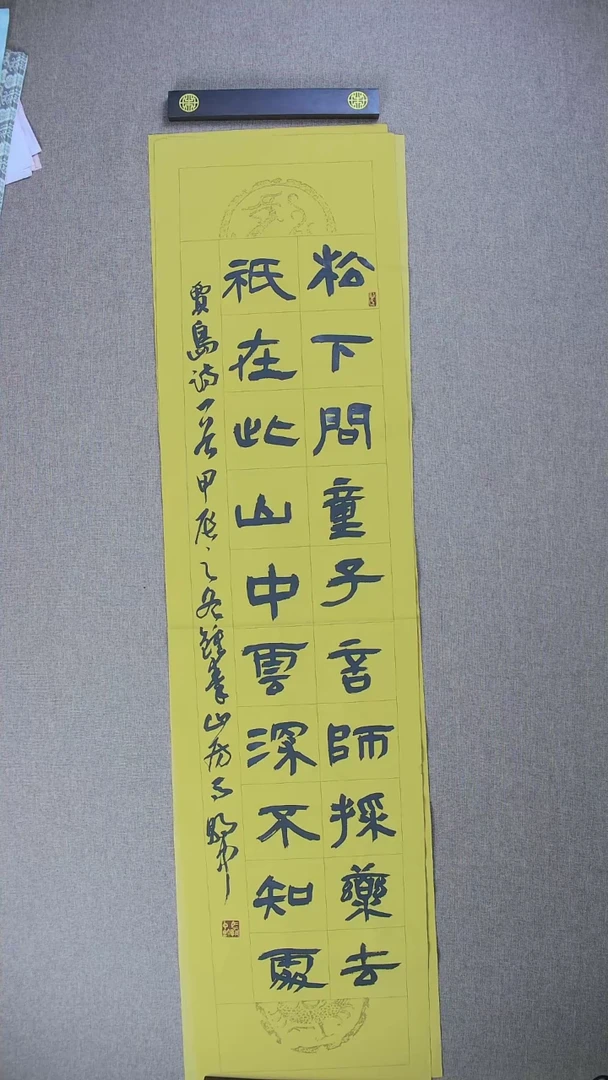 松下問童子言師採藥去
祇在此山中雲深不知處
賈島詩一首甲辰之冬鍾